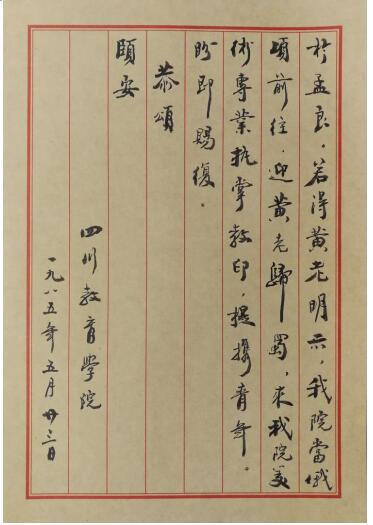 於孟良。若得黄老明示，我院當俄
頃前往，迎黄老歸蜀，来我院美
術專業执掌教印，提攜青年。
盼即賜復。
恭頌
頤安
四川教育学院
一九八五年五月廿三日